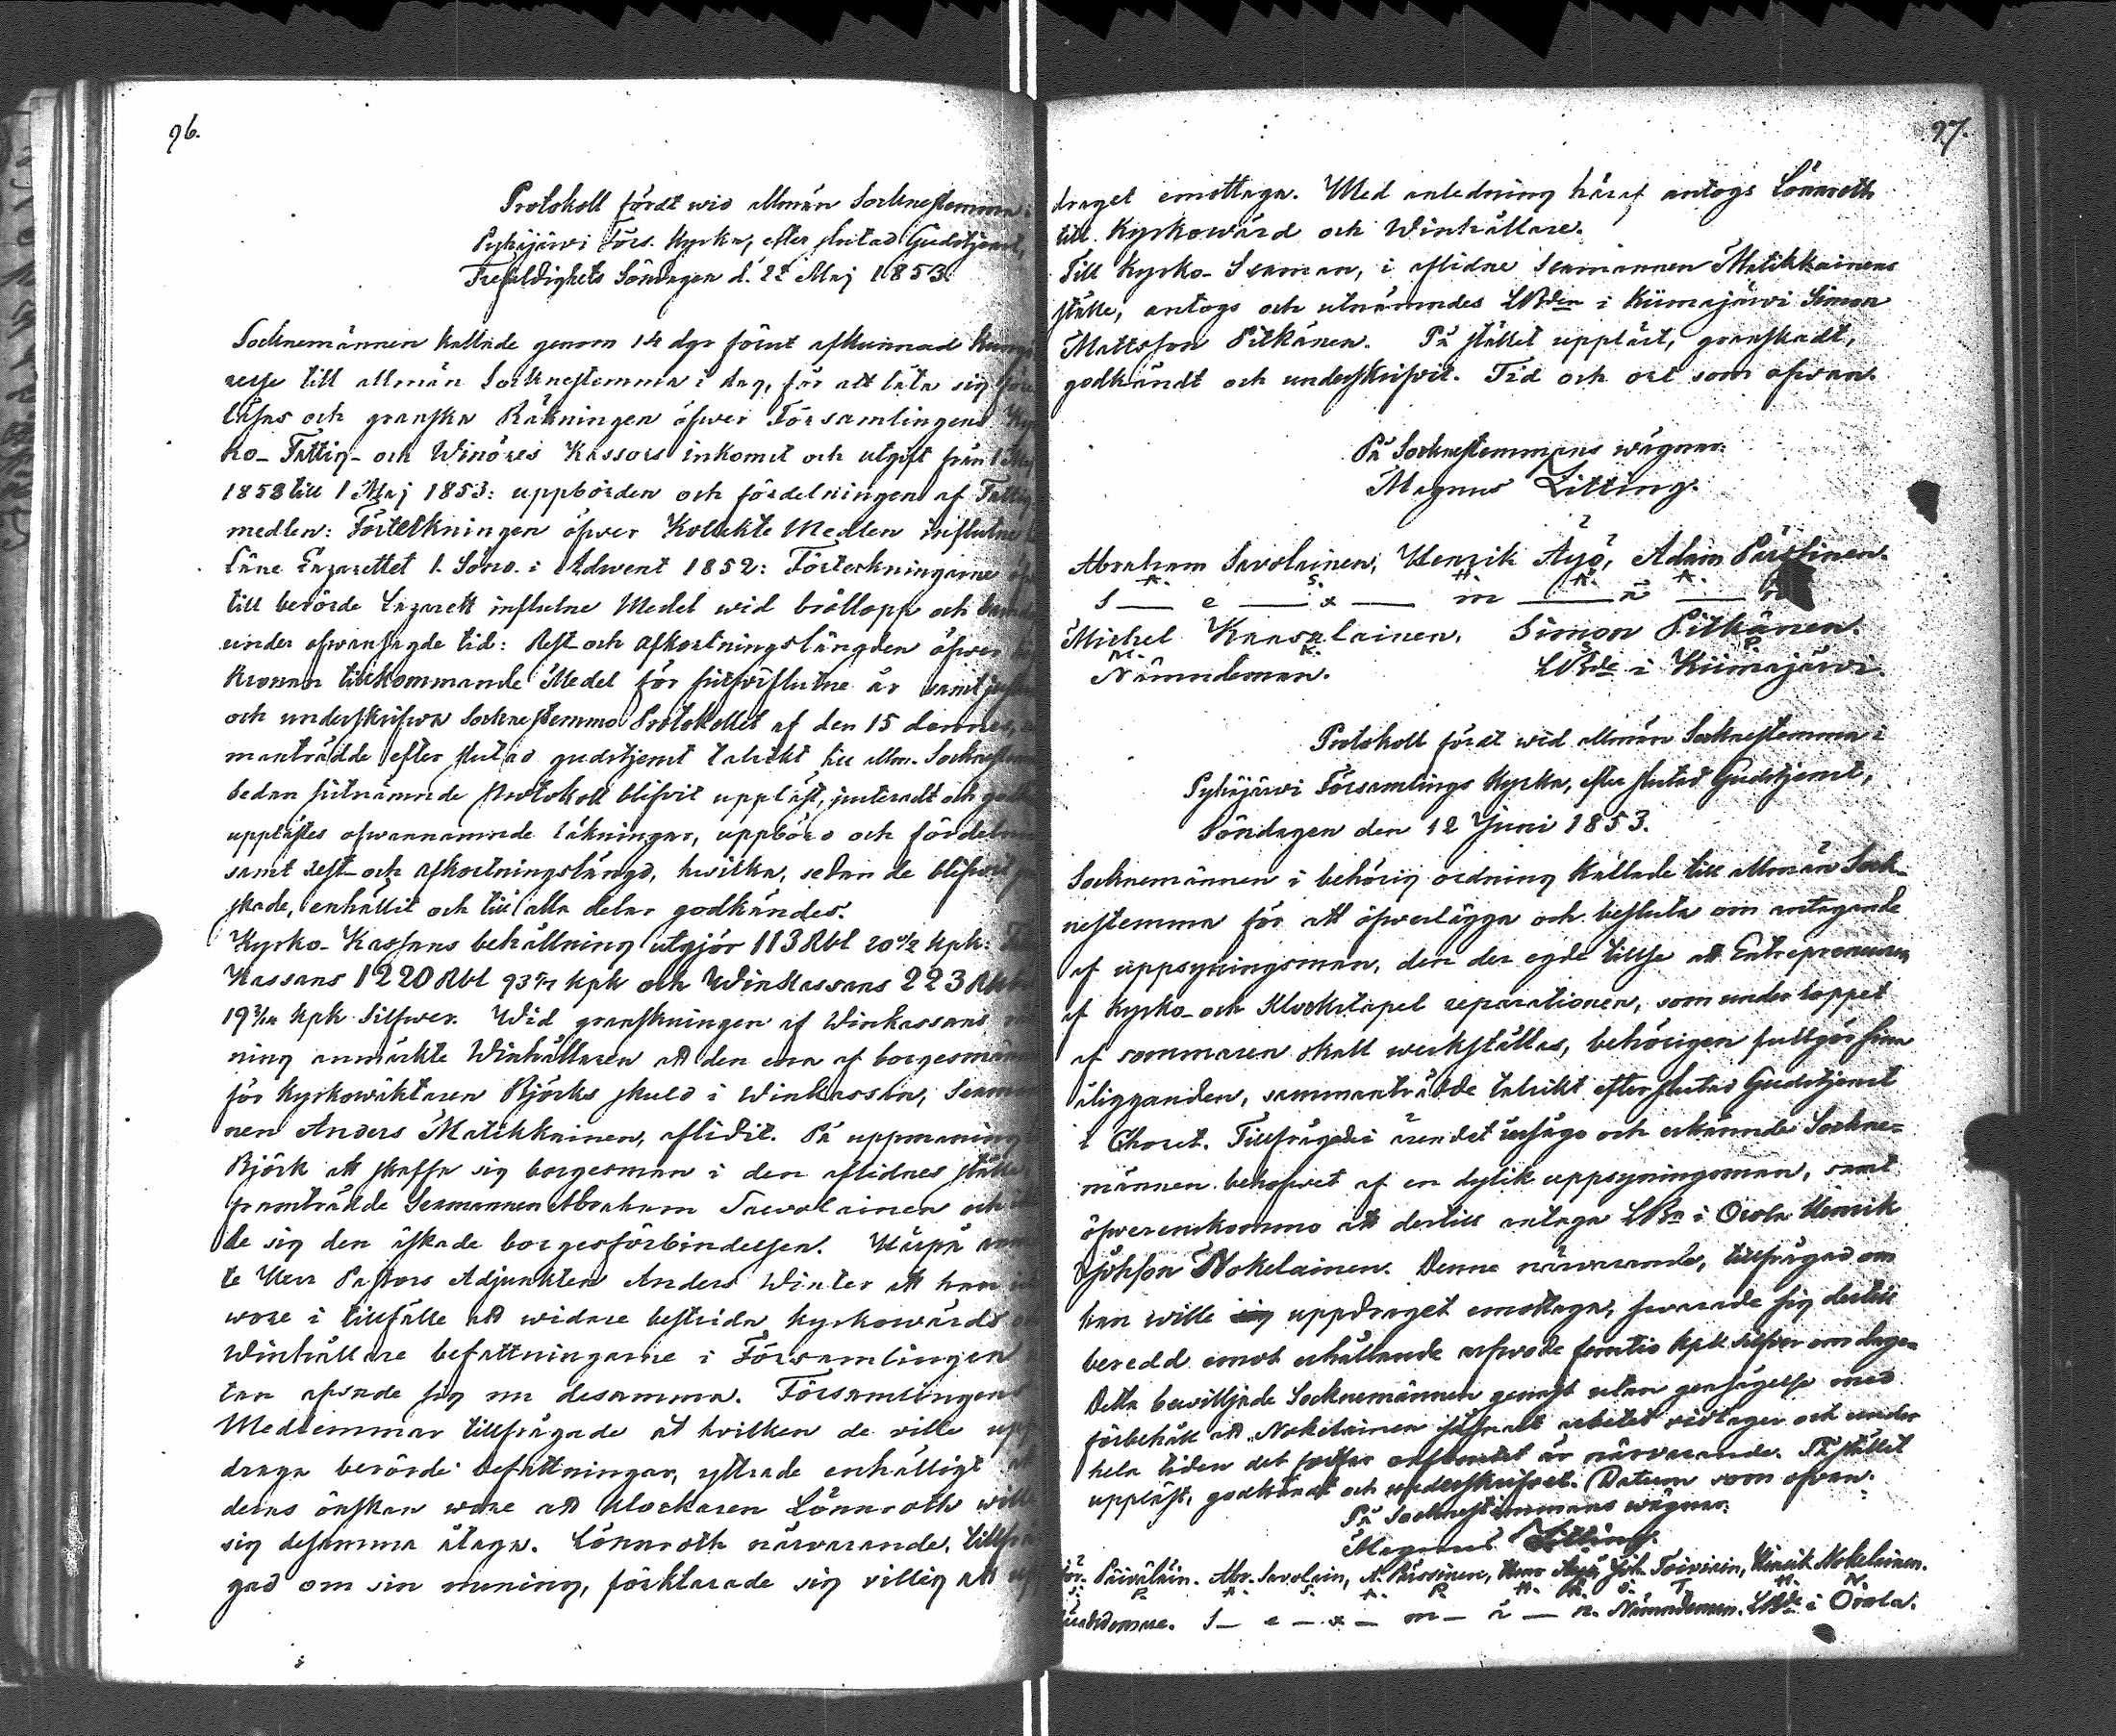 96.
Protokoll fördt wid allmän Socknestemma i
Pyhäjärvi Förs. Kyrka, efter slutad Gudstjenst,
Trefaldighets Söndagen d. 22 Maj 1853.
Socknemännen kallade genom 14 dgr förut afkunnad kung
relse till allmän Socknestemma i dag, för att låta sig före
läsas och granska Räkningen öfwer Församlingens Kyr
ko- Fattig- och Winöres Kassors inkomst och utgift från 1 Maj
1852 till 1 Maj 1853: uppbörden och fördelningen af Fattig
medlen: Förteckningen öfwer Kollekte Medlen influtne
Läne Lazarettet 1. Sönd. i Advent 1852: Förteckningarne öfv
till berörde Lazarett influtne Medel wid bröllopp och
under ofwansagde tid: Rest- och afkortningslängden öfwer
Kronan tillkommande Medel för sistförflutne år samt
och underskrifwa Sockne stemmo Protokollet af den 15 dennes,
manträdde efter slutad gudstjenst talrikt till allm. Socknestem
Sedan sistnämnde Protokoll blifvit uppläst, justeradt och godk
upplästes ofwannämnde räkningar, uppbörd och fördeln
samt rest- och afkortningslängd, hwilka, sedan de blifwit
skade, enhälligt och till alla delar godkändes.
Kyrko-Kassans behållning utgjör 113 Rbl 20 1/2 kpk:
Kassans 1220 Rbl 93 kpk och Winkassans 223 Rbl
19 kpk Silfwer. Wid granskningen af Winkassans
ning anmärkte Winhållaren att den ena af borgesmän
för Kyrkowäktaren Björks skuld i Winkassan, Sexman
nen Anders Matikkainen, aflidit. På uppmaning
Björk att skaffa sig borgesman i den aflidnes ställe
framträdde Sexmannen Abraham Sawolainen och
de sig den äskade borgesförbindelsen. Härpå
te Herr Pastors Adjunkten Anders Winter att han
wore i tillfälle att widare bestrida kyrkowärds
Winhållare befattningarne i Församlingen
tan afsade sig nu desamma. Församlingens
Medlemmar tillfrågade åt hvilken de ville upp
draga berörde befattningar, yttrade enhälligt att
deras önskan wore att klockaren Lönnroth wille
sig desamma åtaga. Lönnroth närwarande, tillfrå
gad om sin mening, förklarade sig villig att upp
97.
draget emottaga. Med anledning häraf antogs Lönnroth
till Kyrkowärd och Winhållare.
Till Kyrko-Sexman, i aflidne Sexmannen Matikkainens
ställe, antogs och utnämndes LBden i Kiimajärvi Simon
Mattsson Pitkänen. På stället uppläst, granskadt,
godkändt och underskrifvit. Tid och ort som ofwan.
På Socknestemmans wägnar:
Magnus Litting.
Abraham Savolainen, Henrik Äyö, Adam Pärssinen.
A. S. H. Ä. A.
S — e — x — m — ä —
Michel Kaasalainen, Simon Pitkänen.
M. K. S. P.
Nämndeman. LBde i Kiimajärvi.
Protokoll fördt wid allmän Socknestemma i
Pyhäjärvi Församlings Kyrka, efter slutad Gudstjenst,
Söndagen den 12 Juni 1853.
Socknemännen i behörig ordning kallade till allmän Sock-
nestemma för att öfverlägga och besluta om antagande
af uppsyningsman, den der egde tillse att Entrepreneuren
af kyrko- och Klockstapel reparationen, som under loppet
af sommaren skall werkställas, behörigen fullgör sina
åligganden, sammanträdde talrikt efter slutad Gudstjenst
i Choret. Tillfrågade i ärendet insågo och erkännde Sockne-
männen behofwet af en dylik uppsyningsman, samt
öfverenskommo att dertill antaga LBn i Orola Henrik
Johsson Nokelainen. Denne närwarande, tillfrågad om
han wille uppdraget emottaga, swarade sig dertill
beredd emot erhållande arfwode femtio kpk silfver om dagen
Detta bewiljade Socknemännen genast utan gensägelse med
förbehåll att Nokelainen såsnart arbetet vidtager och under
hela tiden det fortfar oafbrutet är närvarande. På stället
uppläst, godkändt och underskrifvet. Datum som ofvan.
På Socknestämmans wägnar:
Magnus Litting.
Päiväläin. Abr. Savolain, A. Pärssinen, Henr Äyö, Joh. Toivoin, Henrik Nokelainen.
P. A. S. A. P. H. Ä. J. T. H. N.
S — e — x — m — ä — n. Nämndeman. LBde i Orola.